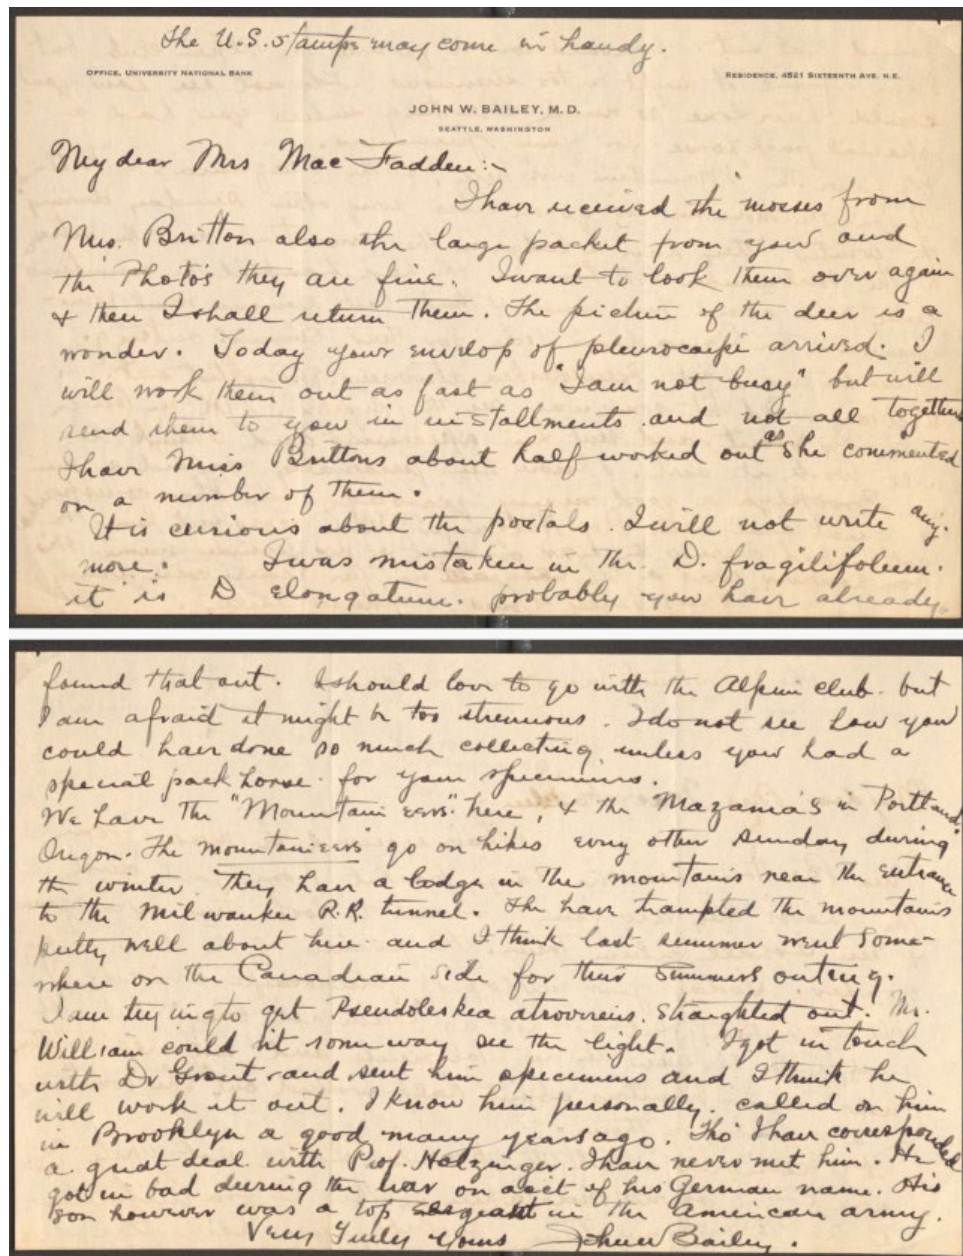 The U.S. stamps may come in handy.
OFFICE, UNIVERSITY NATIONAL BANK
RESIDENCE, 4521 SIXTEENTH AVE. N.E.
JOHN W. BAILEY, M.D.
SEATTLE, WASHINGTON
My dear Mrs Mac Fadden:-
I have received the mosses from
Mrs. Britton also the large packet from you and
the Photo's they are fine. I want to look them over again
& then I shall return them. The picture of the deer is a
wonder. Today your envelop of pleurocarpi arrived. I
will work them out as fast as "I am not busy" but will
send them to you in installments and not all together
I have Miss Brittons about half worked out as she commented
on a number of them.
It is curious about the postals. I will not write any
more. I was mistaken in the D. fragilifolium.
it is D elongatum. probably you have already
found that out. I should love to go with the Alpine club. but
I am afraid it might be too strenuous. I do not see how you
could have done so much collecting unless you had a
special pack horse for your specimens.
We have the "Mountaineers" here, & the Mazama's in Portland
Oregon. The mountaineers go on hikes every other sunday during
the winter. They have a lodge in the mountains near the entrance
to the Milwaukee R.R. tunnel. The have trampted the mountains
pretty well about here and I think last summer went some-
where on the Canadian side for their summers outing.
I am trying to get Pseudoleskea atrovirens. straighted out. Mr.
William could nt some way see the light. I got in touch
with Dr Grout and sent him specimens and I think he
will work it out. I know him personally. called on him
in Brooklyn a good many years ago. Tho' I have corresponded
a great deal with Prof. Holzinger. I have never met him. He
got in bad during the war on acct of his German name. His
son however was a top sergeant in the American army.
Very Truly Yours John W Bailey.